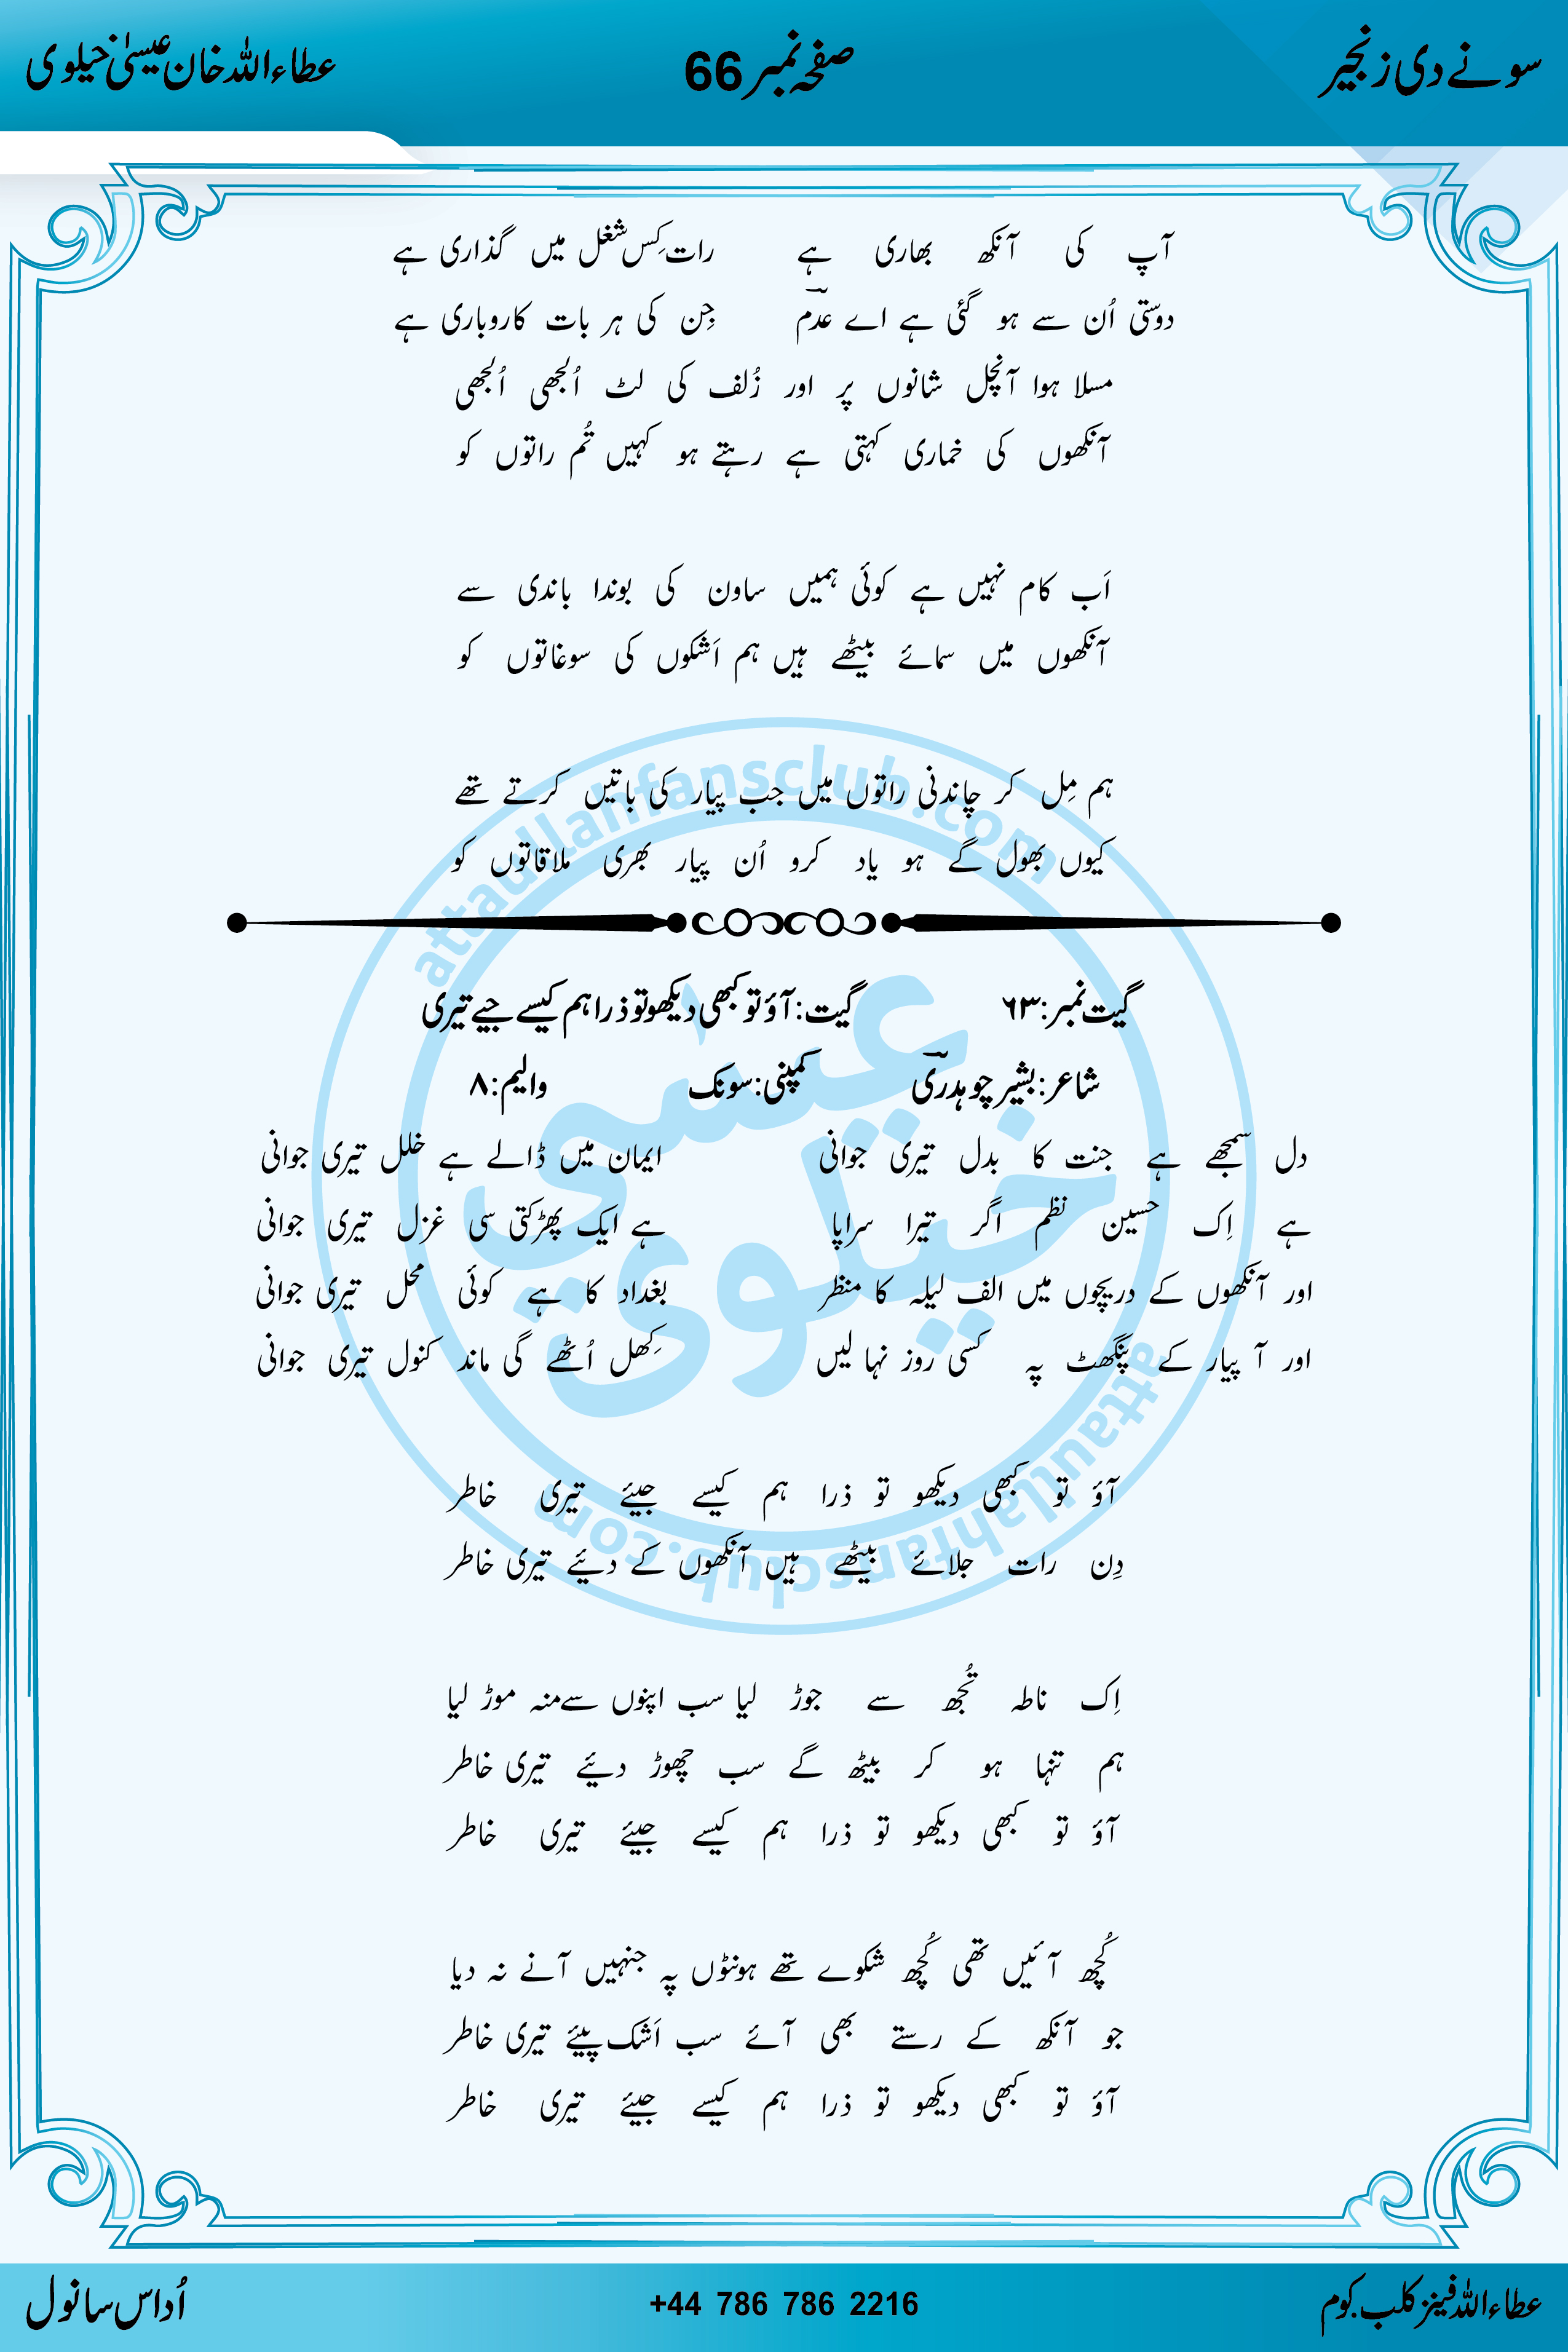 سونے دی زنجیر
صفحہ نمبر 66
عطاء اللہ خان عیسیٰ خیلوی
آپ کی آنکھ بھاری ہے رات کِس شغل میں گذاری ہے
دوستی اُن سے ہو گئی ہے اے عدمؔ جِن کی ہر بات کاروباری ہے
مسلا ہوا آنچل شانوں پر اور زُلف کی لٹ اُلجھی اُلجھی
آنکھوں کی خماری کہتی ہے رہتے ہو کہیں تُم راتوں کو
اَب کام نہیں ہے کوئی ہمیں ساون کی بوندا باندی سے
آنکھوں میں سمائے بیٹھے ہیں ہم اَشکوں کی سوغاتوں کو
ہم مِل کر چاندنی راتوں میں جب پیار کی باتیں کرتے تھے
کیوں بھول گے ہو یاد کرو اُن پیار بھری ملاقاتوں کو
گیت نمبر: ۶۳ گیت: آؤ تو کبھی دیکھو تو ذرا ہم کیسے جیے تیری
شاعر: بشیر چوہدریؔ کمپنی: سونک والیم: ۸
دل سمجھے ہے جنت کا بدل تیری جوانی ایمان میں ڈالے ہے خلل تیری جوانی
ہے اِک حسین نظم اگر تیرا سراپا ہے ایک پھڑکتی سی غزل تیری جوانی
اور آنکھوں کے دریچوں میں الف لیلہ کا منظر بغداد کا ہے کوئی محل تیری جوانی
اور آ پیار کے پنگھٹ پہ کسی روز نہا لیں کِھل اُٹھے گی ماند کنول تیری جوانی
آؤ تو کبھی دیکھو تو ذرا ہم کیسے جیئے تیری خاطر
دِن رات جلائے بیٹھے ہیں آنکھوں کے دیئے تیری خاطر
اِک ناطہ تُجھ سے جوڑ لیا سب اپنوں سے منہ موڑ لیا
ہم تنہا ہو کر بیٹھ گے سب چھوڑ دیئے تیری خاطر
آؤ تو کبھی دیکھو تو ذرا ہم کیسے جیئے تیری خاطر
کُچھ آئیں تھی کُچھ شکوے تھے ہونٹوں پہ جنہیں آنے نہ دیا
جو آنکھ کے رستے بھی آئے سب اَشک پیئے تیری خاطر
آؤ تو کبھی دیکھو تو ذرا ہم کیسے جیئے تیری خاطر
attaullahfansclub.com
عیسٰی
خیلوی
attaullahfansclub.com
عطاء اللہ فینز کلب.کوم
+44 786 786 2216
اُداس سانول